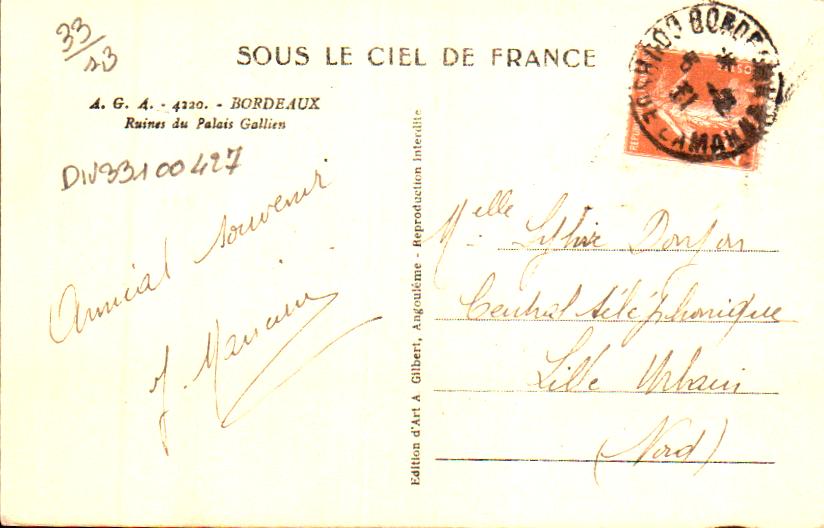 33/23
SOUS LE CIEL DE FRANCE
A. G. A. - 4220. - BORDEAUX
Ruines du Palais Gallien
DIV33100427
Amical souvenir
Edition d'Art A Gilbert, Angoulême - Reproduction interdite
BORDE
Melle Sylvie Donjon
Central téléphonique
Lille Urbain
(Nord)